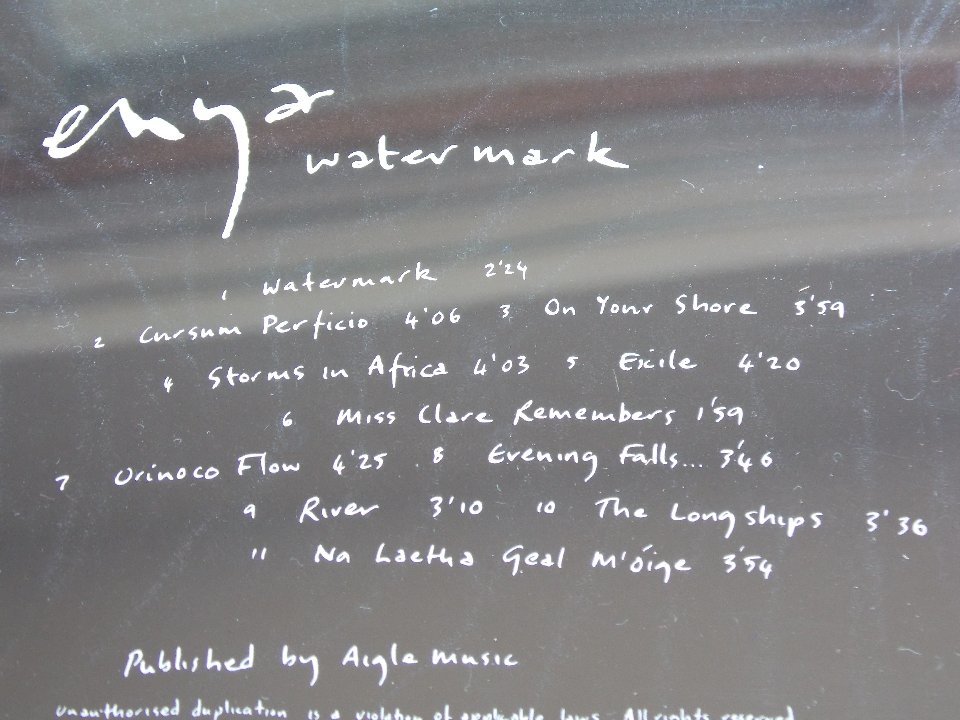 enya
watermark
1 Watermark 2'24
2 Cursum Perficio 4'06 3 On Your Shore 3'59
4 Storms in Africa 4'03 5 Exile 4'20
6 Miss Clare Remembers 1'59
7 Orinoco Flow 4'25 8 Evening Falls... 3'46
9 River 3'10 10 The Longships 3'36
11 Na Laetha Geal M'óige 3'54
Published by Aigle Music
Unauthorised duplication is a violation of applicable laws. All rights reserved